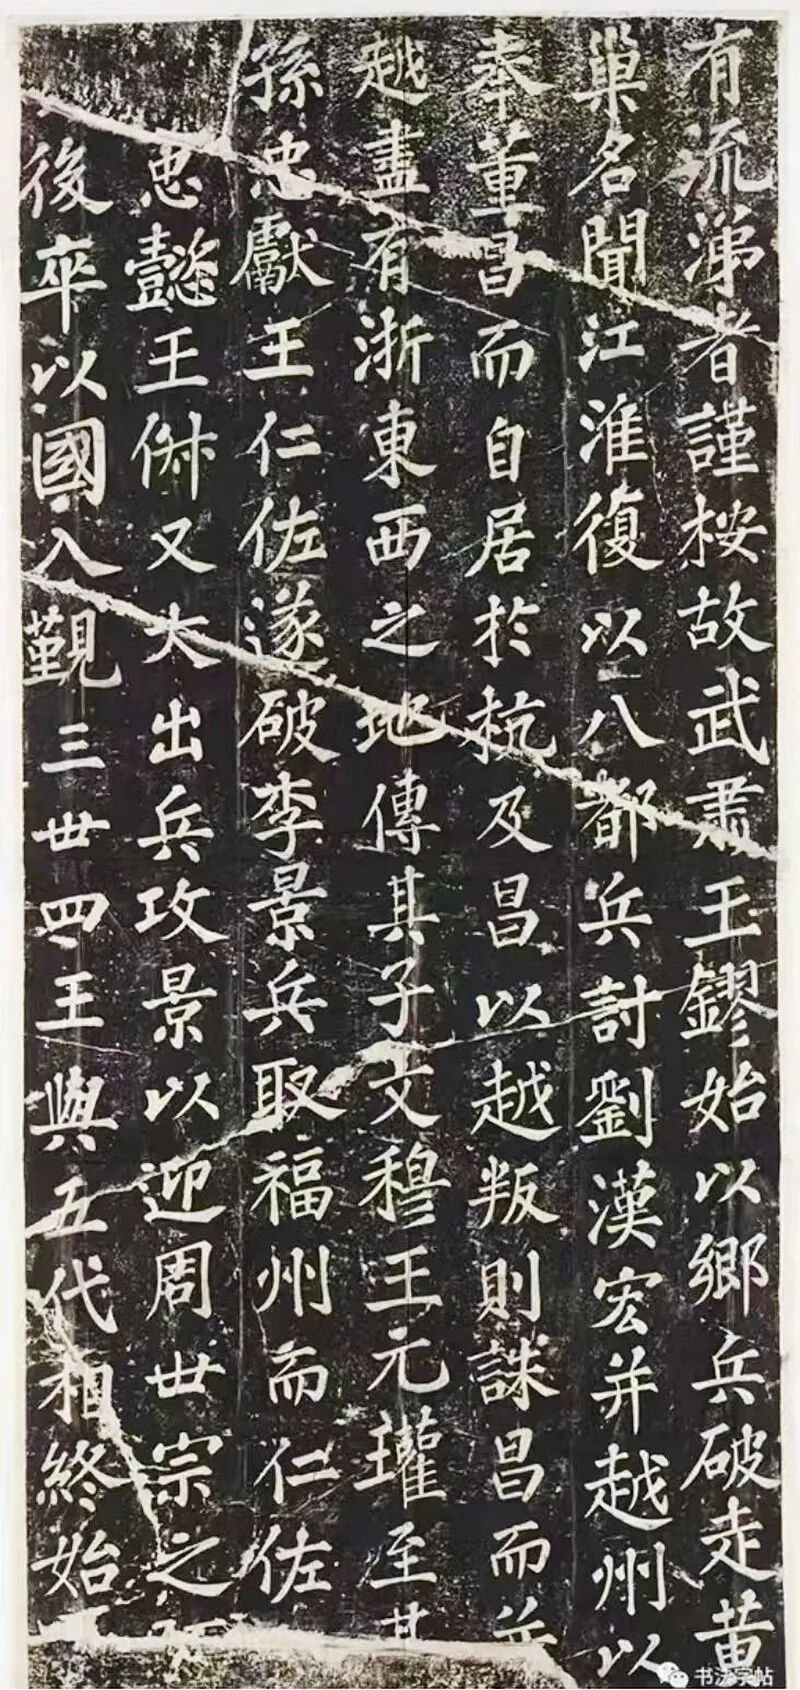 有流涕者謹桉故武肅王鏐始以鄉兵破走黄
巢名聞江淮復以八都兵討劉漢宏并越州以
奉董昌而自居於杭及昌以越叛則誅昌而并
越盡有浙東西之地傳其子文穆王元瓘至其
孫忠獻王仁佐遂破李景兵取福州而仁佐
忠懿王俶又大出兵攻景以迎周丗宗之
後卒以國入覲三丗四王與五代相終始
书法字帖